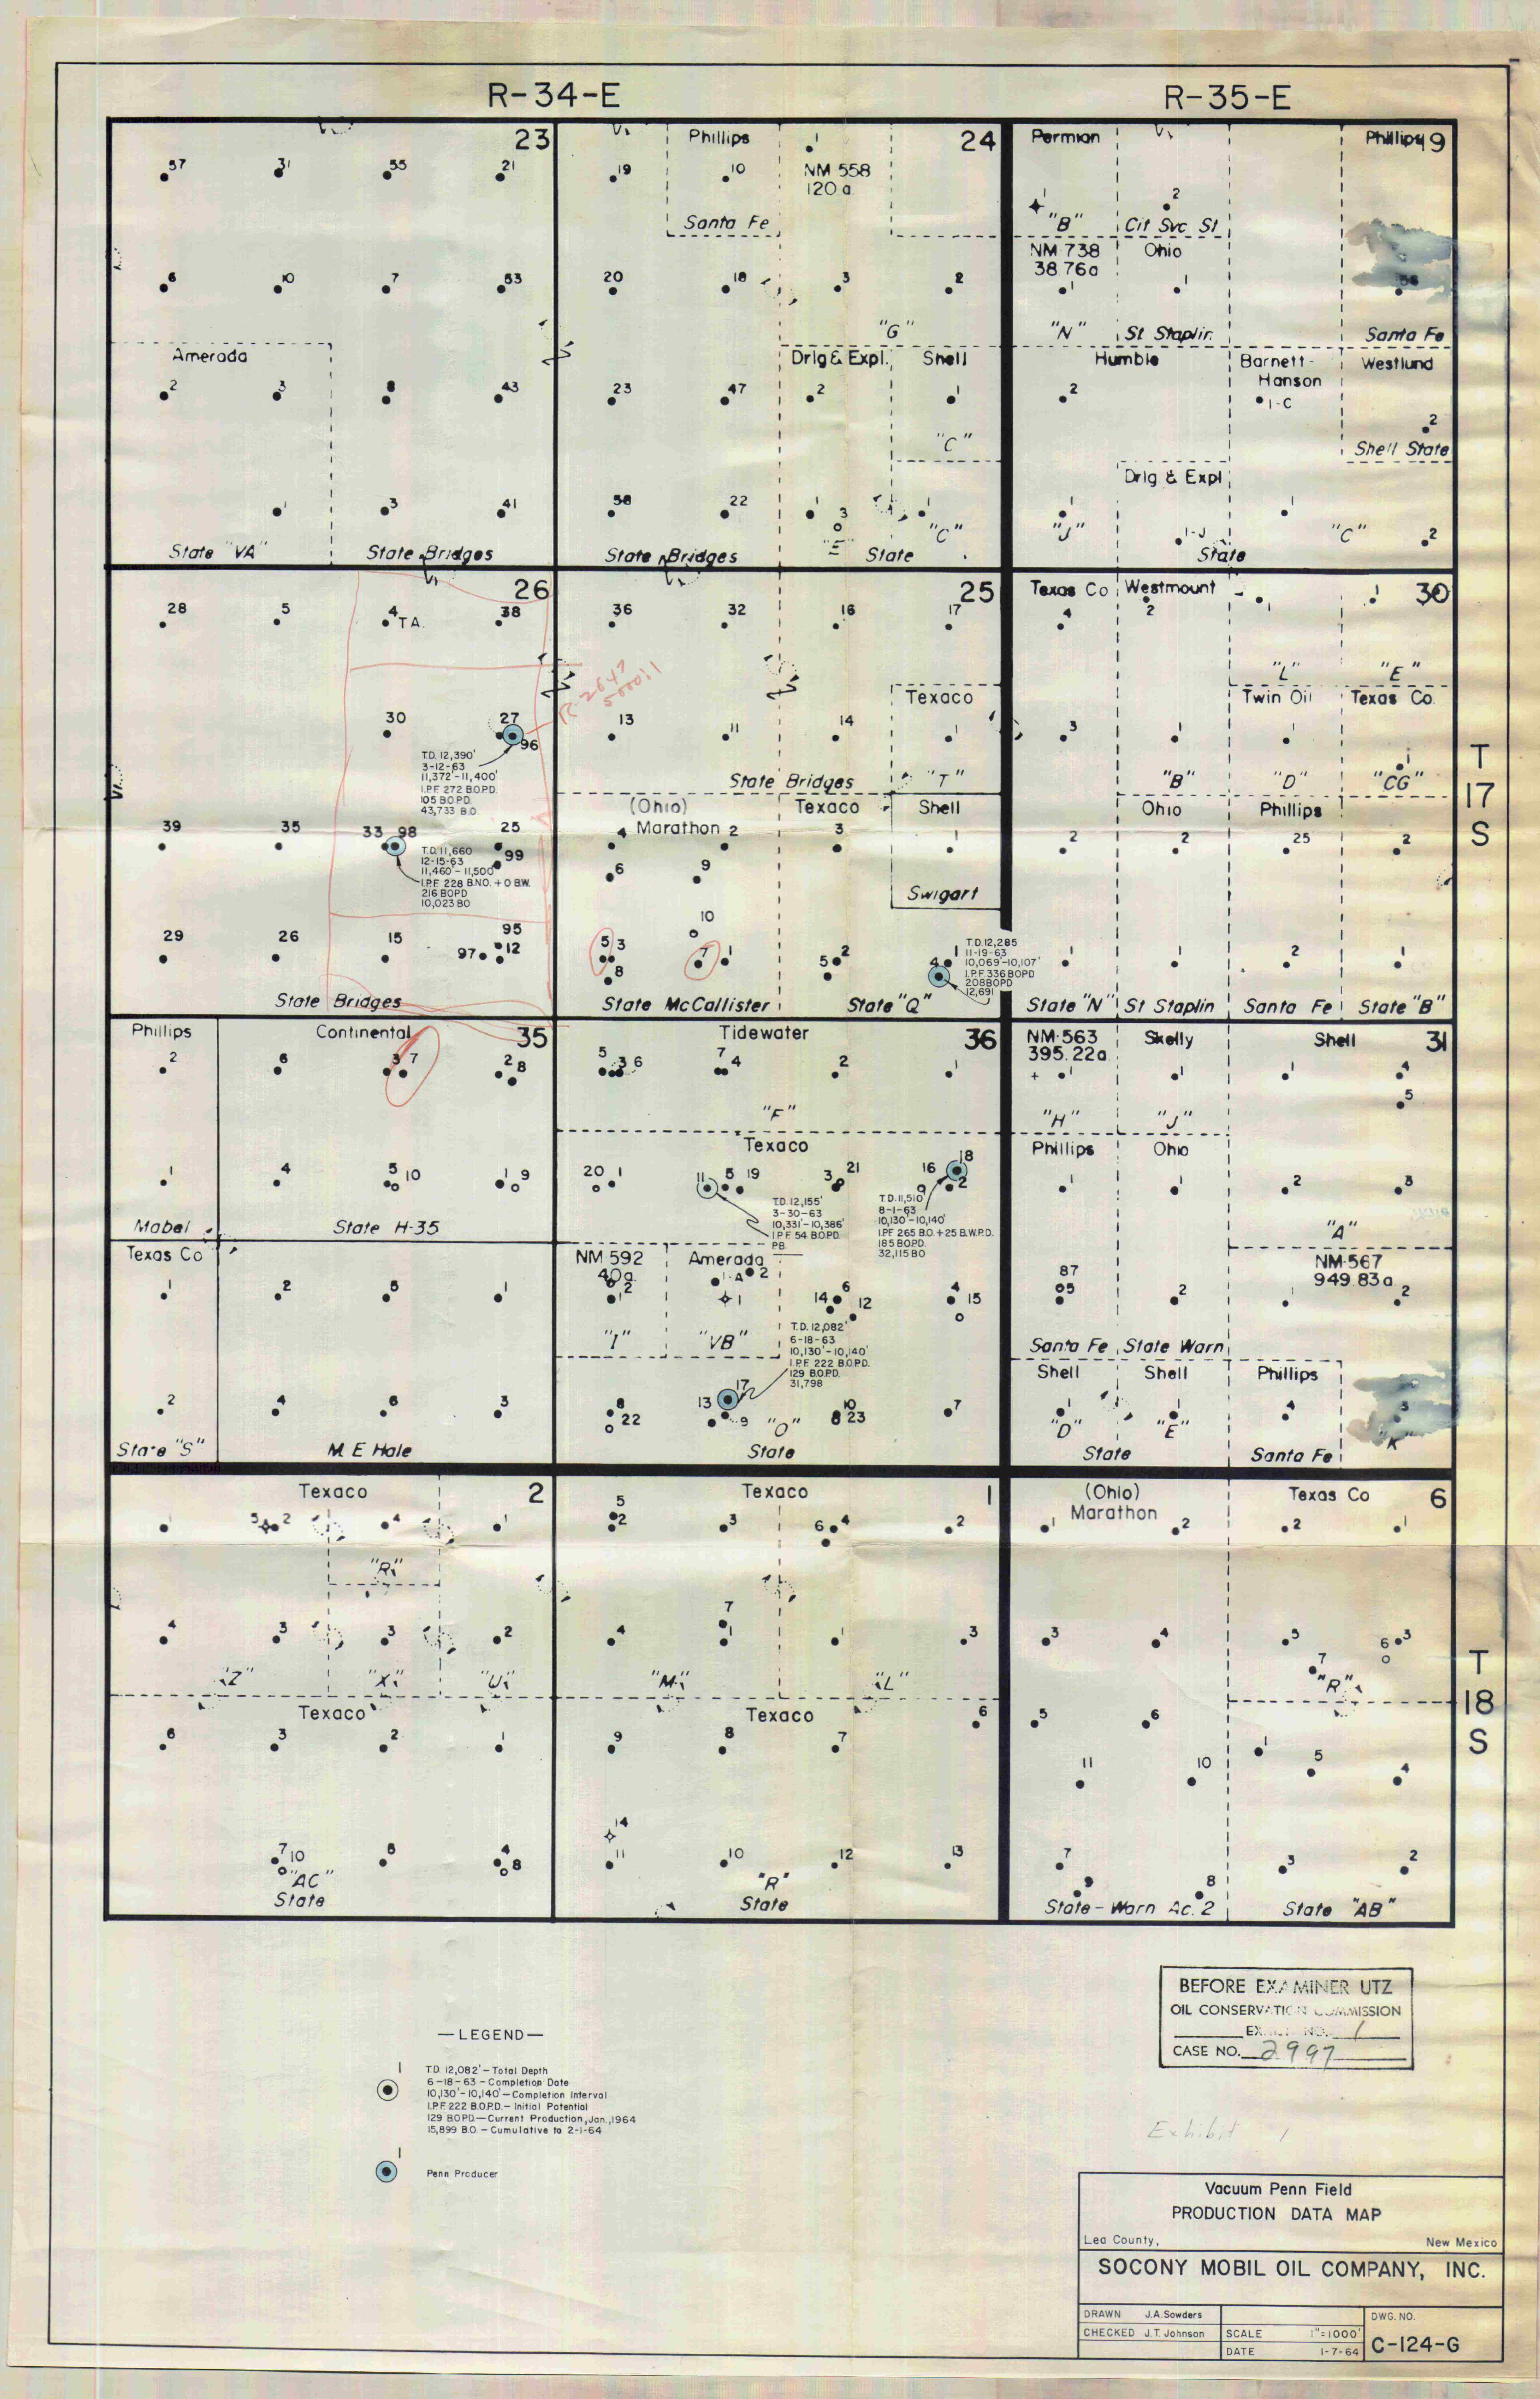 R-34-E
R-35-E
23
57
31
55
21
6
10
7
53
Amerada
2
3
8
43
1
3
41
State "VA"
State Bridges
24
Phillips
19
10
1
NM 558
120 a.
Santa Fe
20
18
3
2
"G"
Drlg & Expl.
Shell
23
47
2
1
"C"
58
22
1
3
1
"E"
"C"
State Bridges
State
Permian
Phillips
19
1
2
"B"
Cit Svc St.
NM 738
38.76a
Ohio
1
1
"N"
St Staplin
Santa Fe
Humble
Barnett-
Hanson
Westlund
2
1-C
2
Shell State
Drlg & Expl
1
"J"
1-J
1
"C"
2
State
26
28
5
4
T.A.
38
30
27
96
T.D. 12,390'
3-12-63
11,372'-11,400'
I.P.F. 272 B.O.P.D.
105 B.O.P.D.
43,733 B.O.
R-2647
39
35
33
98
25
99
T.D. 11,660
12-15-63
11,460'-11,500'
I.P.F. 228 B.N.O. + 0 B.W.
216 BOPD
10,023 BO
29
26
15
95
97
12
State Bridges
25
36
32
16
17
Texaco
13
11
14
1
State Bridges
"T"
(Ohio)
Marathon
Texaco
Shell
4
2
3
1
6
9
Swigart
10
5
3
7
1
8
5
2
4
1
T.D. 12,285
11-19-63
10,069'-10,107'
I.P.F. 336 BOPD
208 BOPD
12,691
State McCallister
State "Q"
Texas Co
Westmount
30
4
2
1
1
"L"
"E"
Twin Oil
Texas Co.
3
1
1
1
"B"
"D"
"CG"
Ohio
Phillips
2
2
25
2
1
1
2
1
State "N"
St Staplin
Santa Fe
State "B"
T
17
S
Phillips
Continental
35
2
6
3
7
2
8
1
4
5
10
1
9
Mabel
State H-35
Texas Co
1
2
5
1
2
4
6
3
State "S"
M. E Hale
Tidewater
36
5
3
6
7
4
2
1
"F"
Texaco
20
1
11
5
19
3
21
16
18
2
T.D. 12,155'
3-30-63
10,331'-10,386'
I.P.F. 54 BOPD.
PB
T.D. 11,510'
8-1-63
10,130'-10,140'
I.P.F. 265 B.O. +25 B.W.P.D.
185 BOPD.
32,115 BO
NM 592
40a
Amerada
2
1-A
2
1
14
6
12
4
15
"I"
"VB"
T.D. 12,082'
6-18-63
10,130'-10,140'
I.P.F. 222 B.O.P.D.
129 BOPD.
31,798
8
22
13
17
9
"O"
10
8
23
7
State
NM-563
395.22a.
Skelly
Shell
31
1
1
1
4
5
"H"
"J"
Phillips
Ohio
1
1
2
3
"A"
NM-567
949.83a
87
05
2
1
2
Santa Fe
State Warn
Shell
Shell
Phillips
1
1
4
3
"D"
"E"
"K"
State
Santa Fe
Texaco
2
1
5
2
4
1
"R"
4
3
3
2
"Z"
"X"
"U"
Texaco
6
3
2
1
7
10
5
4
8
"AC"
State
Texaco
1
5
2
3
6
4
2
4
7
1
1
3
"M"
"L"
Texaco
9
8
7
6
14
11
10
12
13
"R"
State
(Ohio)
Marathon
Texas Co
6
1
2
2
1
3
4
5
6
3
7
"R"
5
6
11
10
1
5
4
7
9
8
3
2
State-Warn Ac. 2
State "AB"
T
18
S
BEFORE EXAMINER UTZ
OIL CONSERVATION COMMISSION
EXHIBIT NO. 1
CASE NO. 2997
—LEGEND—
1
T.D. 12,082'—Total Depth
6-18-63—Completion Date
10,130'-10,140'—Completion Interval
I.P.F. 222 B.O.P.D.—Initial Potential
129 B.O.P.D.—Current Production, Jan., 1964
15,899 B.O.—Cumulative to 2-1-64
1
Penn Producer
Exhibit 1
Vacuum Penn Field
PRODUCTION DATA MAP
Lea County,
New Mexico
SOCONY MOBIL OIL COMPANY, INC.
DRAWN J.A. Sowders
CHECKED J.T. Johnson
SCALE 1"=1000'
DATE 1-7-64
DWG. NO.
C-124-G